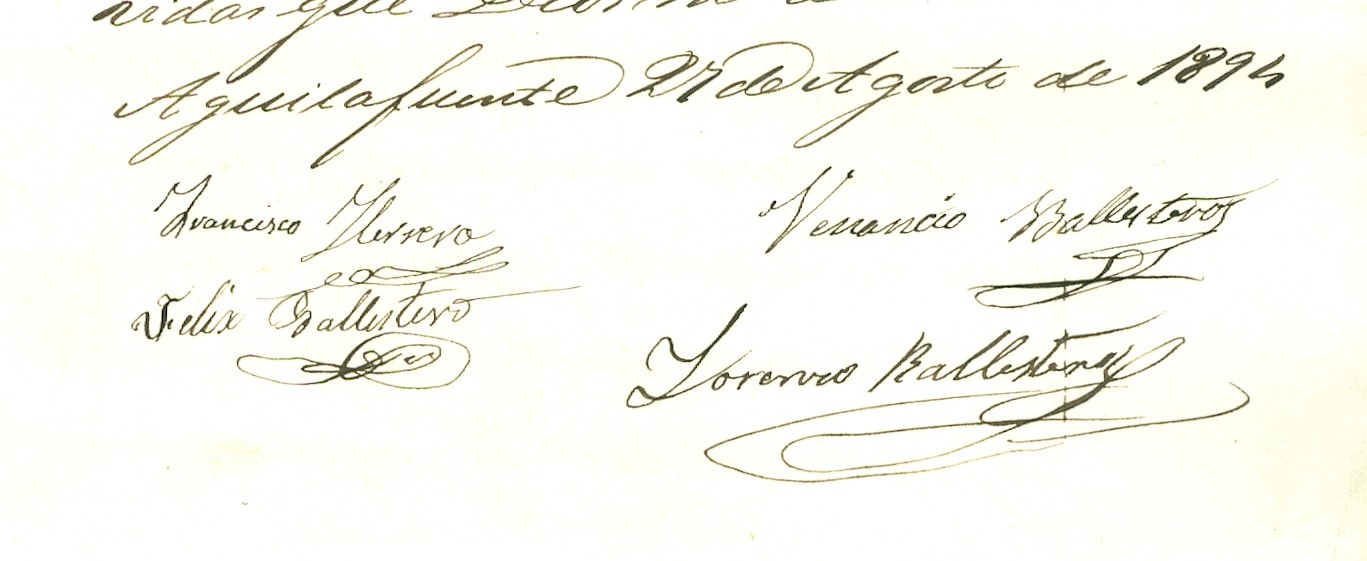 vidas que Dios
Aguilafuente 27 de Agosto de 1894
Francisco Herrero
Venancio Ballesteros
Felix Ballestero
Lorenzo Ballesteros